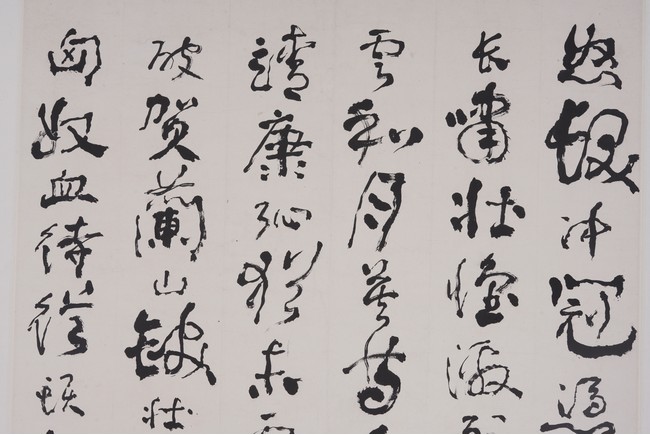 怒髮冲冠憑
长嘯壮懷激
雲和月莫等
靖康耻猶未
破贺蘭山缺壮
匈奴血待從頭